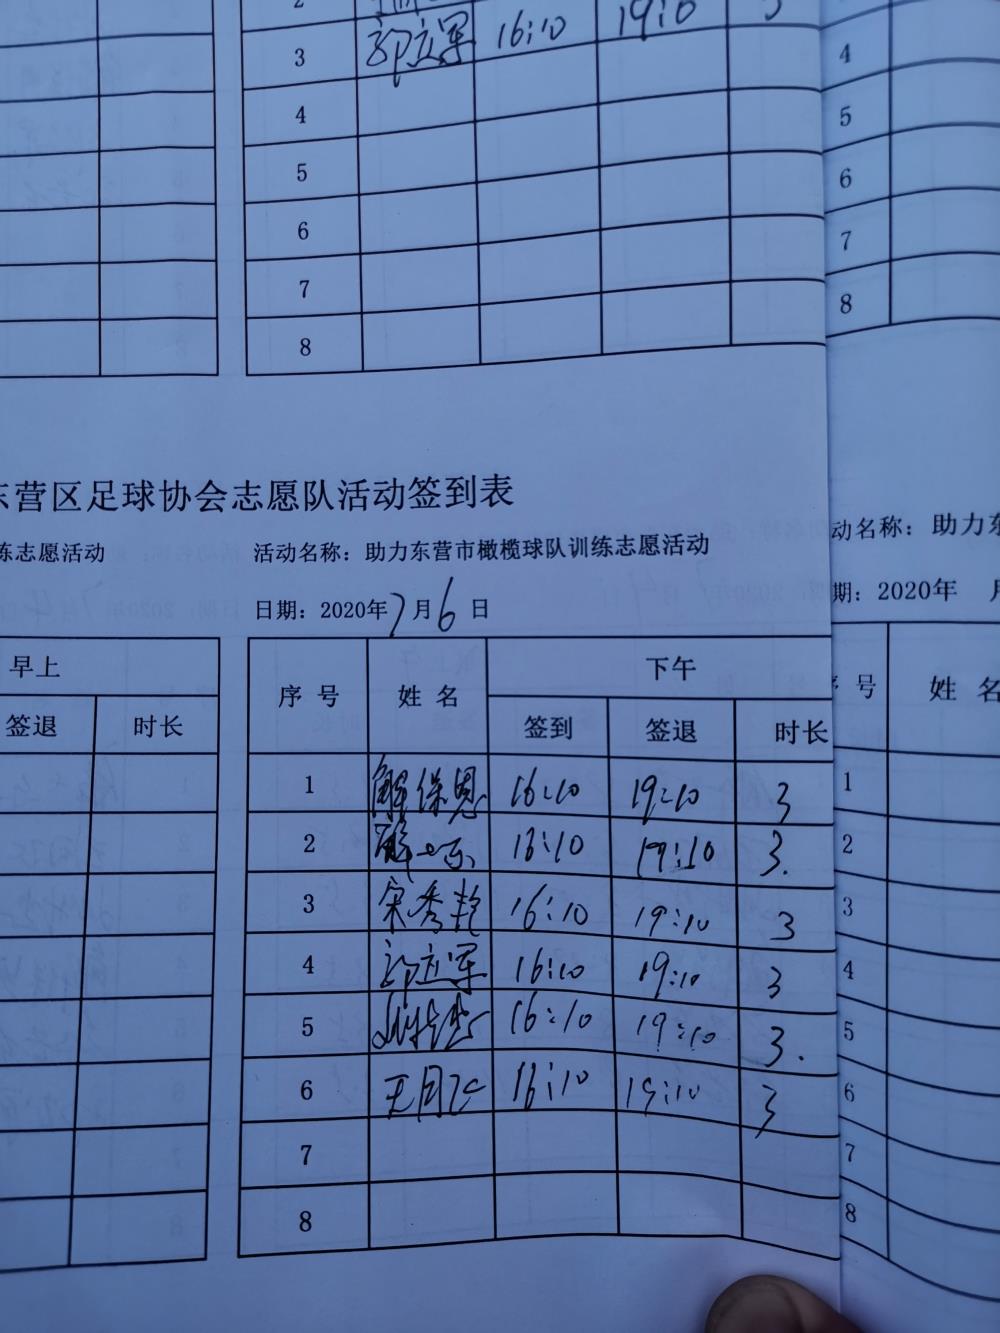 3 郭立军 16:10 19:10 3
4
5
6
7
8
4
5
6
7
8
东营区足球协会志愿队活动签到表
练志愿活动
活动名称：助力东营市橄榄球队训练志愿活动
日期：2020年7月6日
动名称：助力东
期：2020年 月
早上
签退 时长
序号 姓名 下午
签到 签退 时长
1 解保恩 16:10 19:10 3
2 解 16:10 19:10 3.
3 宋秀艳 16:10 19:10 3
4 郭立军 16:10 19:10 3
5 16:10 19:10 3.
6 王同 16:10 19:10 3
7
8
号 姓名
1
2
3
4
5
6
7
8